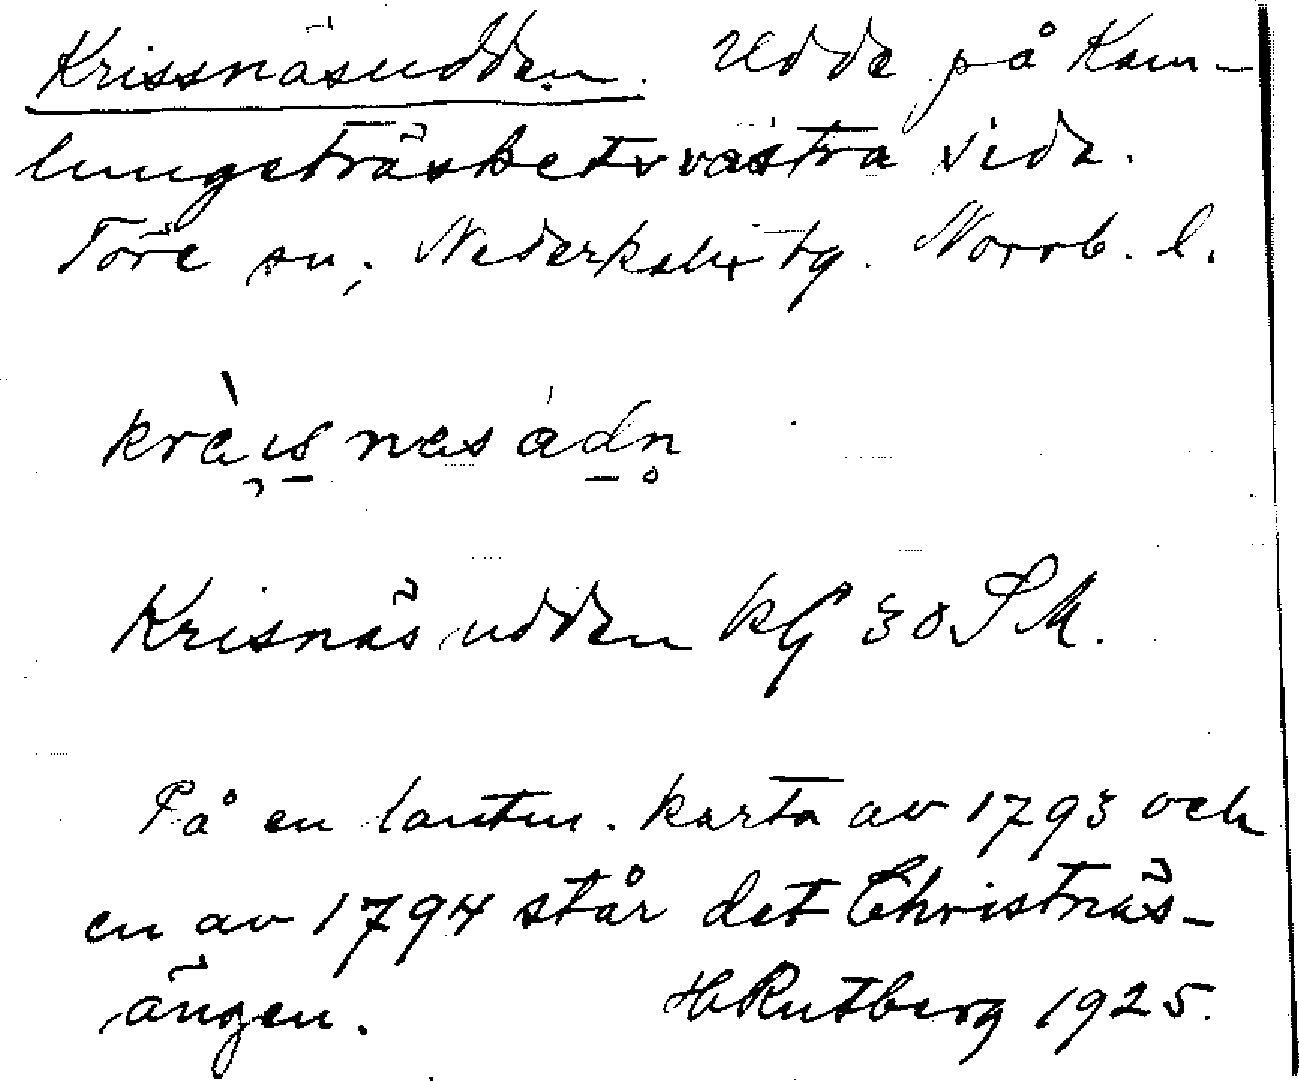 Krissnäsudden. Udde på Kam-
lungeträskets västra sida.
Töre sn, Nederkalix tg. Norrb. l.
krɑ̀i̯s nɛsádn̥
Krisnäsudden KG 30 SM.
På en lantm. karta av 1793 och
en av 1794 står det Christnäs-
ängen. HRutberg 1925.